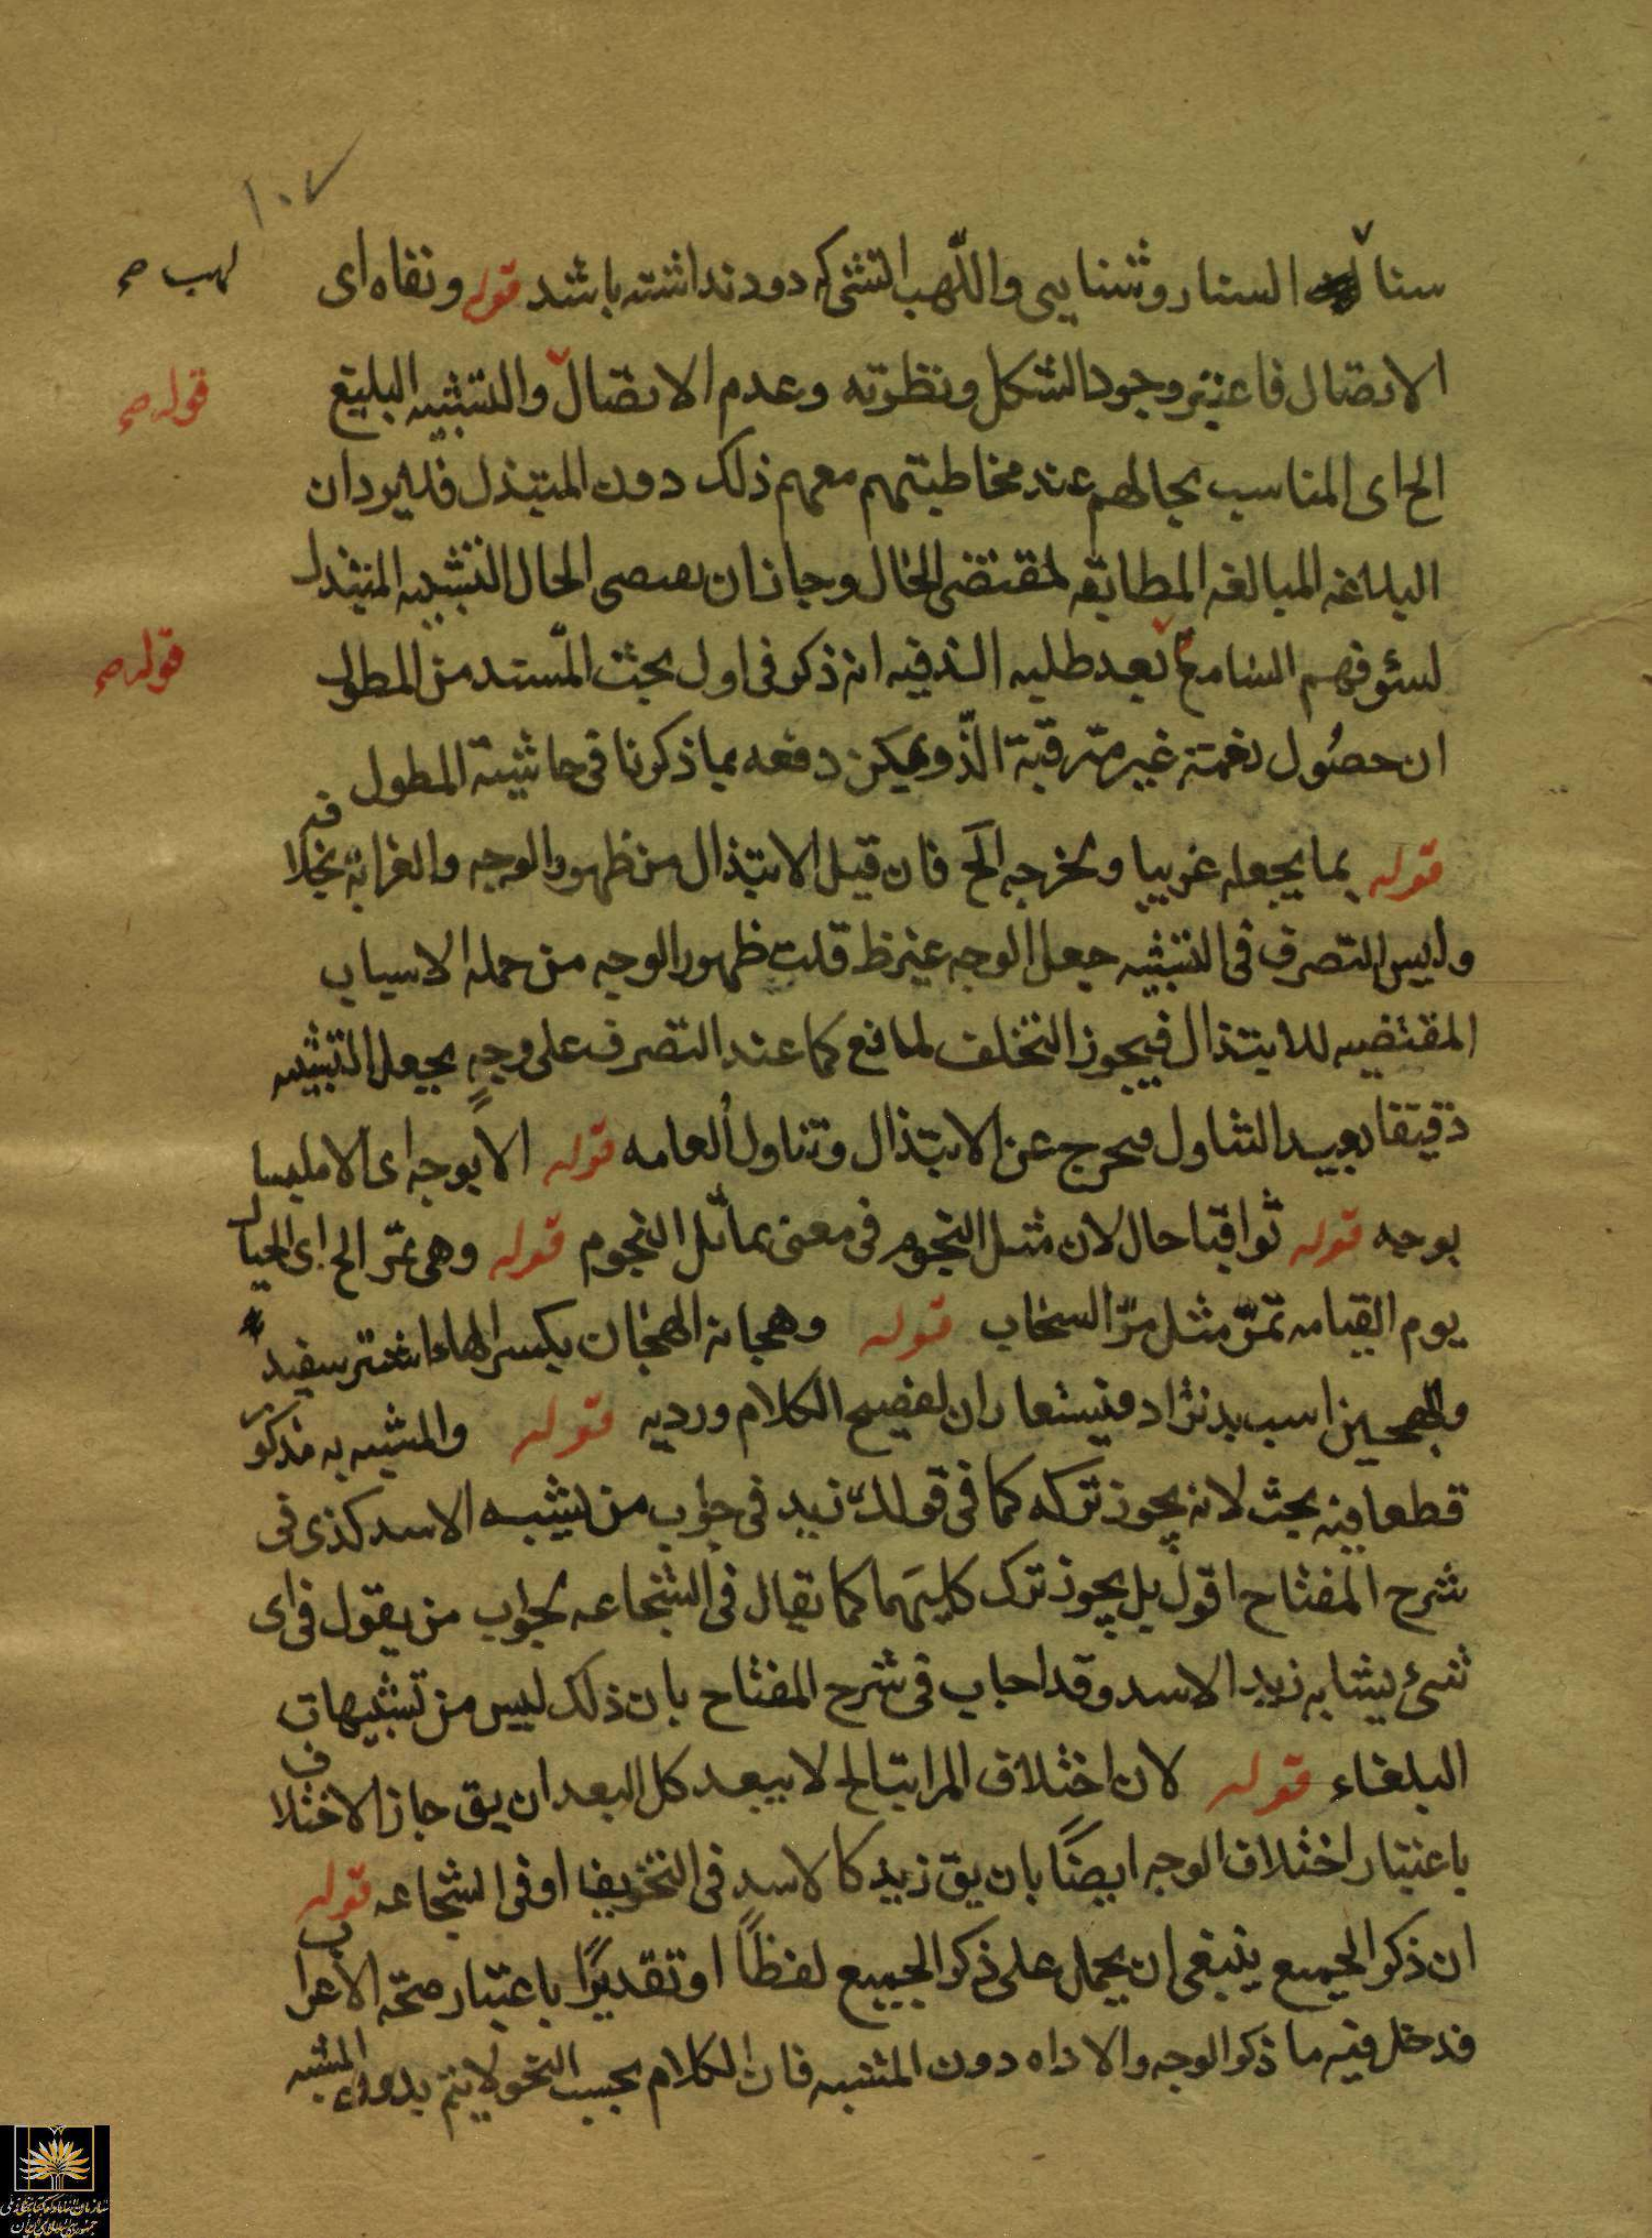 ١٠٧
سنا السنا روشنایی واللّهب اتشی که دود نداشته باشد قوله ونفاه ای
لهب صح
الاتصال فاعتبر وجود الشكل ونظرته وعدم الاتصال والتشبيه البليغ
قوله صح
الخ اى المناسب بحالهم عند مخاطبتهم معهم ذلك دون المبتذل فلا يرد ان
البلاغه المبالغه المطابقه لمقتضى الحال وجاز ان يقتضى الحال التشبيه المبتذل
لسوء فهم السامع بعد طلبه الذ فيه انه ذكر فى اول بحث المسند من المطول
قوله صح
ان حصول نعمة غير مترقبة الذ ويمكن دفعه بما ذكرنا فى حاشية المطول
قوله بما يجعله غريبا ويخرجه الخ فان قيل الابتذال من ظهور الوجه والغرابة بخلافه
وليس التصرف فى التشبيه جعل الوجه غير ظ قلت ظهور الوجه من جمله الاسباب
المقتضيه للابتذال فيجوز التخلف لمانع كما عند التصرف على وجهٍ يجعل التشبيه
دقيقا بعيد التناول فيخرج عن الابتذال وتناول العامه قوله الا بوجه اى الا ملبسا
بوجه قوله ثواقبا حال لان مثل النجوم فى معنى يماثل النجوم قوله وهى تمرّ الخ اى الجبال
يوم القيامه تمرّ مثل مرّ السحاب قوله وهجانه الهجان بكسر الهاء اشتر سفید
والهجين اسب بدنژاد فيستعاران لفصيح الكلام ورديه قوله والمشبه به مذكور
قطعا فيه بحث لانه يجوز تركه كما فى قولك زيد فى جواب من يشبه الاسد كذى فى
شرح المفتاح اقول بل يجوز ترك كليهما كما يقال فى الشجاعه بجواب من يقول فى اى
شىء يشابه زيد الاسد وقد اجاب فى شرح المفتاح بان ذلك ليس من تشبيهات
البلغاء قوله لان اختلاف المراتب الخ لا يبعد كل البعد ان يق جاز الاختلاف
باعتبار اختلاف الوجه ايضًا بان يق زيد كالاسد فى التخويف او فى الشجاعه قوله
ان ذكر الجميع ينبغى ان يحمل على ذكر الجميع لفظًا او تقديرًا باعتبار صحّه الاعراب
فدخل فيه ما ذكر الوجه والاداه دون المشبه فان الكلام بحسب النحو لا يتم بدون المشبه